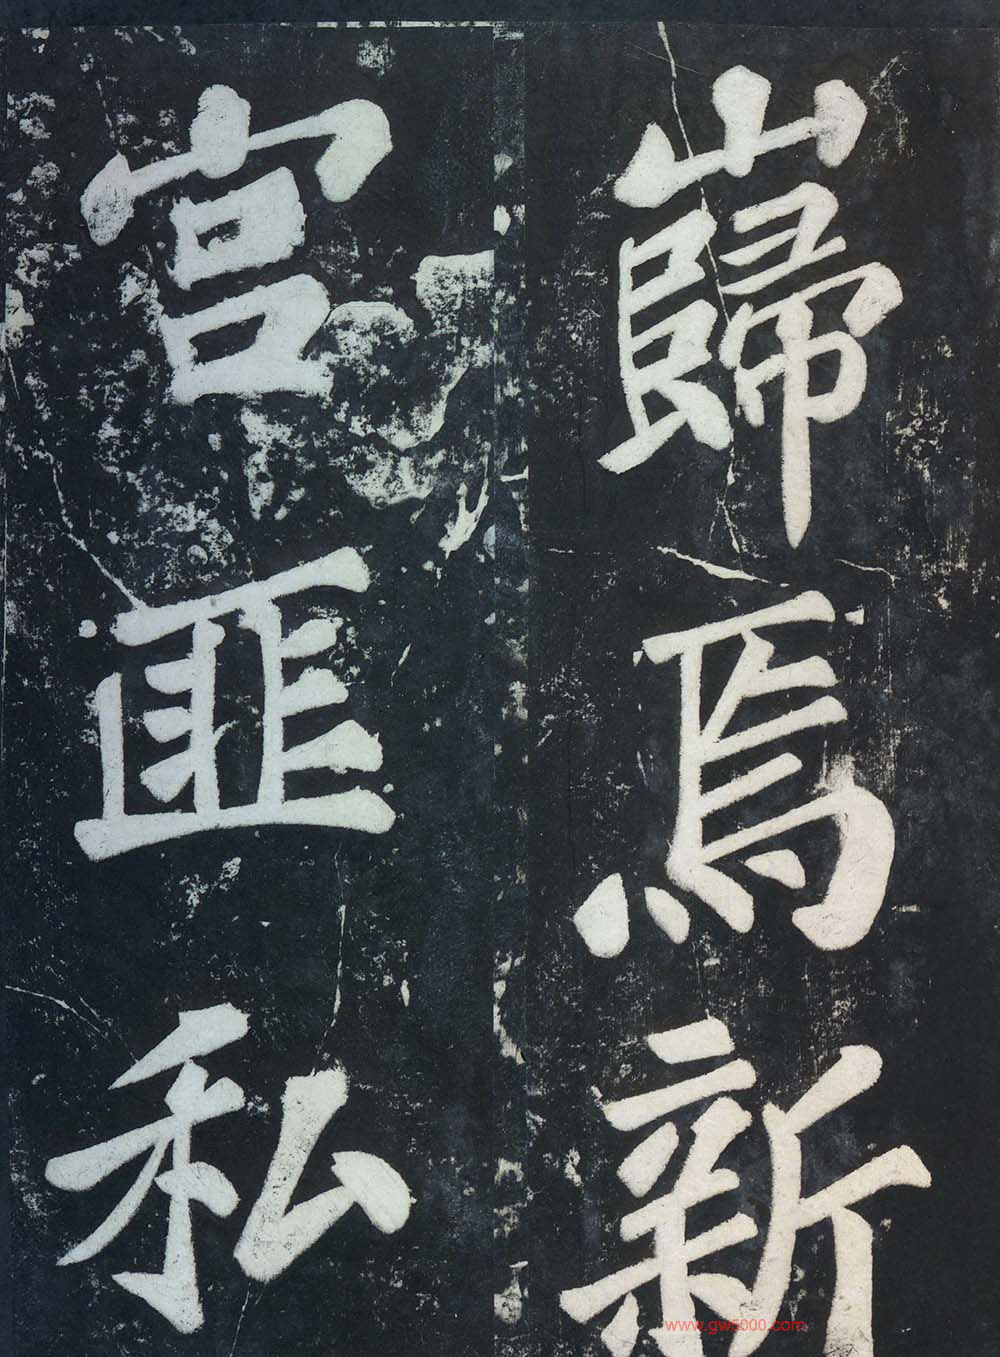 巋焉新
宮匪私
www.gw5000.com